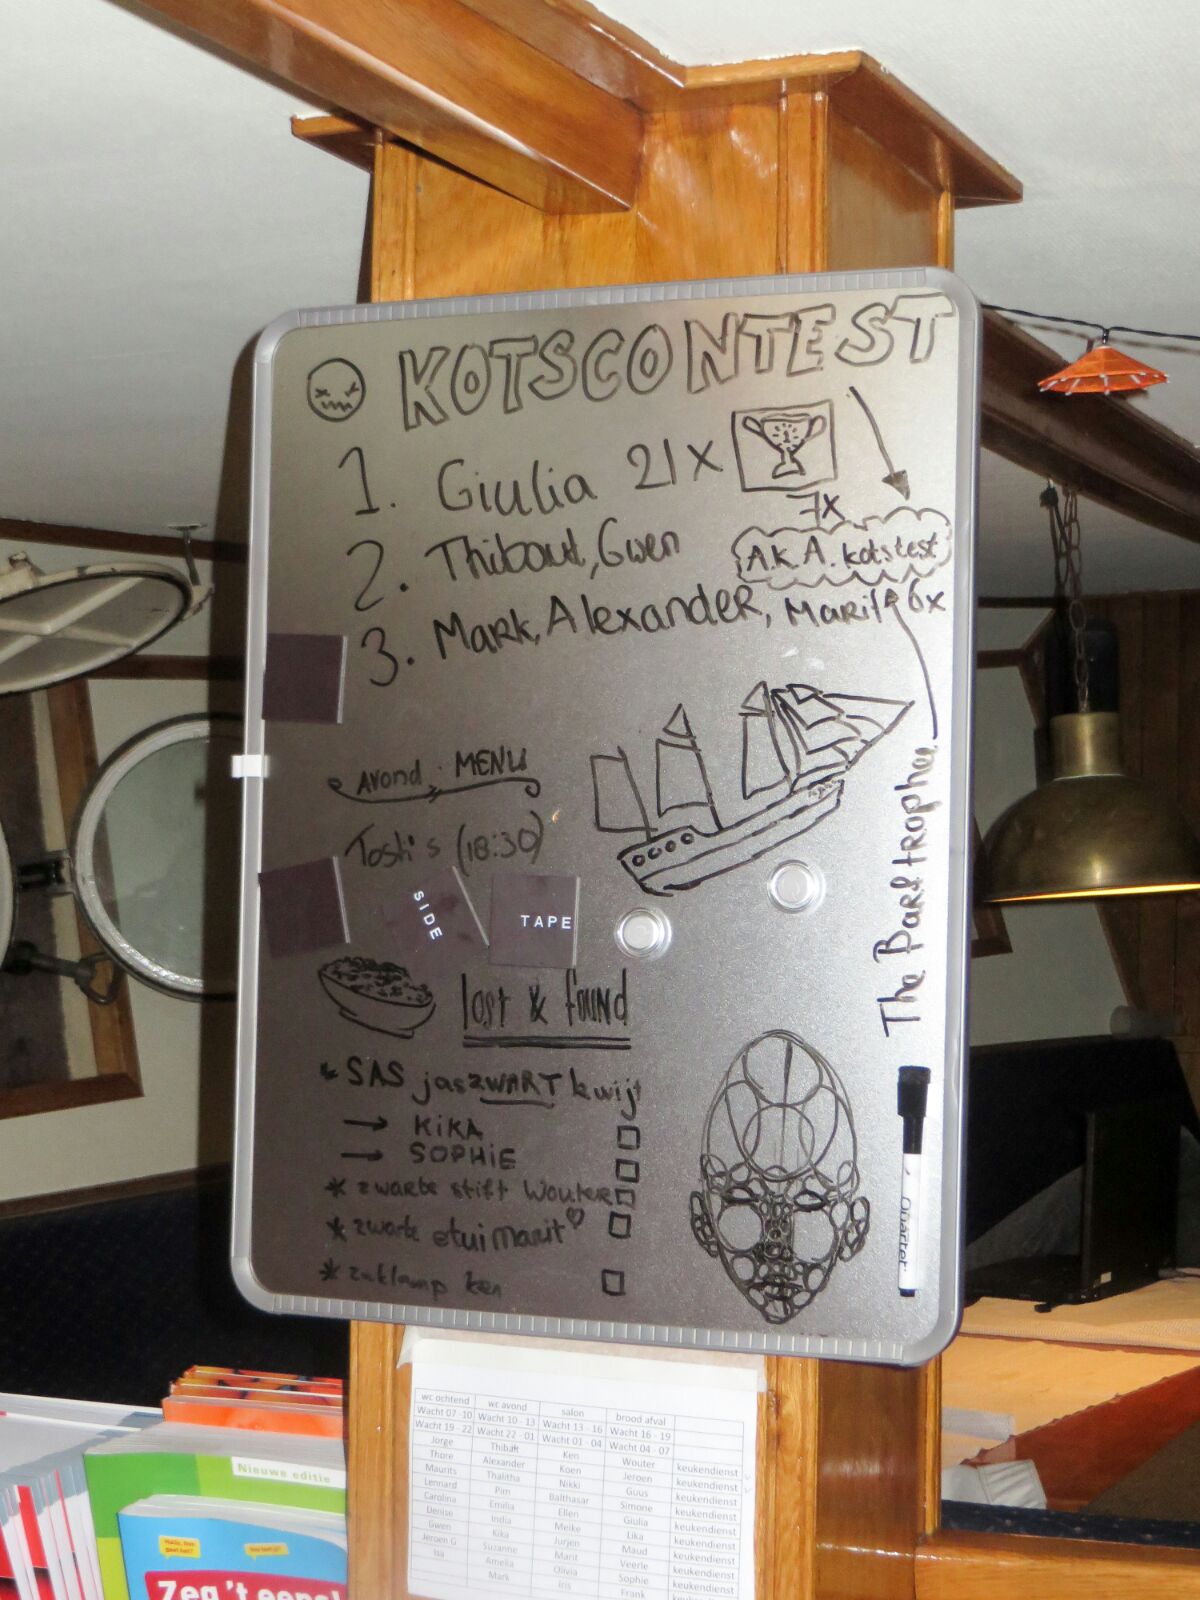 KOTSCONTEST
1. Giulia 21x
1
7x
2. Thibaut, Gwen
A.K.A. kotstest
3. Mark, Alexander, Marit 6x
Avond MENU
Tosti's (18:30)
SIDE
TAPE
The Barf trophee
lost & found
* SAS jas ZWART kwijt
→ KiKA
→ SOPHiE
* zwarte stift Wouter
* zwarte etui Marit ♡
* zaklamp ken
Quartet
wc ochtend wc avond salon brood afval
Wacht 07 -10 Wacht 10 - 13 Wacht 13 - 16 Wacht 16 - 19
Wacht 19 - 22 Wacht 22 - 01 Wacht 01 - 04 Wacht 04 - 07
Jorge Thibalt Ken Wouter keukendienst
Thore Alexander Koen Jeroen keukendienst
Maurits Thalitha Nikki Guus keukendienst
Lennard Pim Balthasar Simone keukendienst
Carolina Emilia Ellen Giulia keukendienst
Denise India Meike Lika keukendienst
Gwen Kika Jurjen Maud keukendienst
Jeroen G Suzanne Marit Veerle keukendienst
Isa Amelia Olivia Sophie keukendienst
Mark Iris Frank keukendienst
Nieuwe editie
Zeg 't eens!